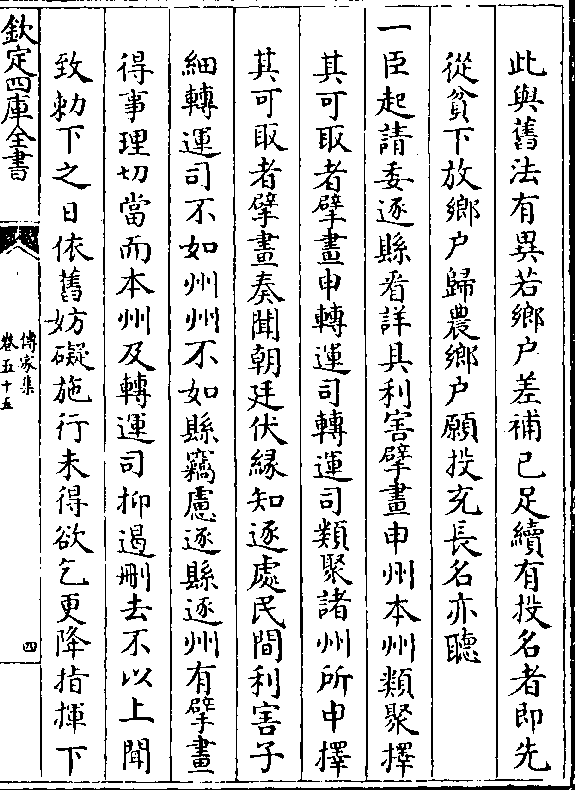 此與舊法有異若鄉户差補已足續有投名者即先
從貧下放鄉户歸農鄉户願投充長名亦聽
一臣起請委逐縣看詳具利害擘畫申州本州類聚擇
其可取者擘畫申轉運司轉運司類聚諸州所申擇
其可取者擘畫奏聞朝廷伏緣知逐處民間利害子
細轉運司不如州州不如縣竊慮逐縣逐州有擘畫
得事理切當而本州及轉運司抑遏刪去不以上聞
致勅下之日依舊妨礙施行未得欲乞更降指揮下
欽定四庫全書
傳家集
卷五十五
四